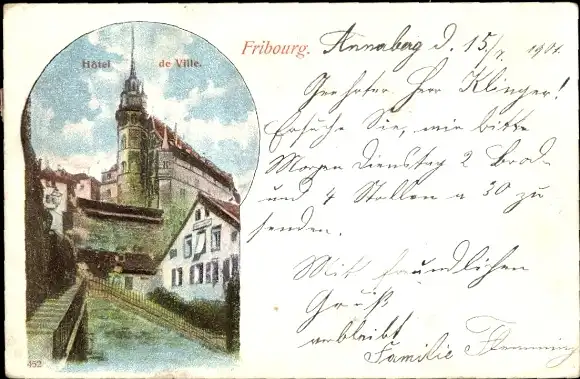 Hôtel de Ville.
Fribourg.
Annaberg d. 15./7. 1901.
Geehrter Herr Klinger!
Ersuche Sie, mir bitte
Morgen Dienstag 2 Brod
und 4 Stollen a 30 zu
senden.
Mit freundlichen
Gruß
verbleibt
Familie Flemming
452